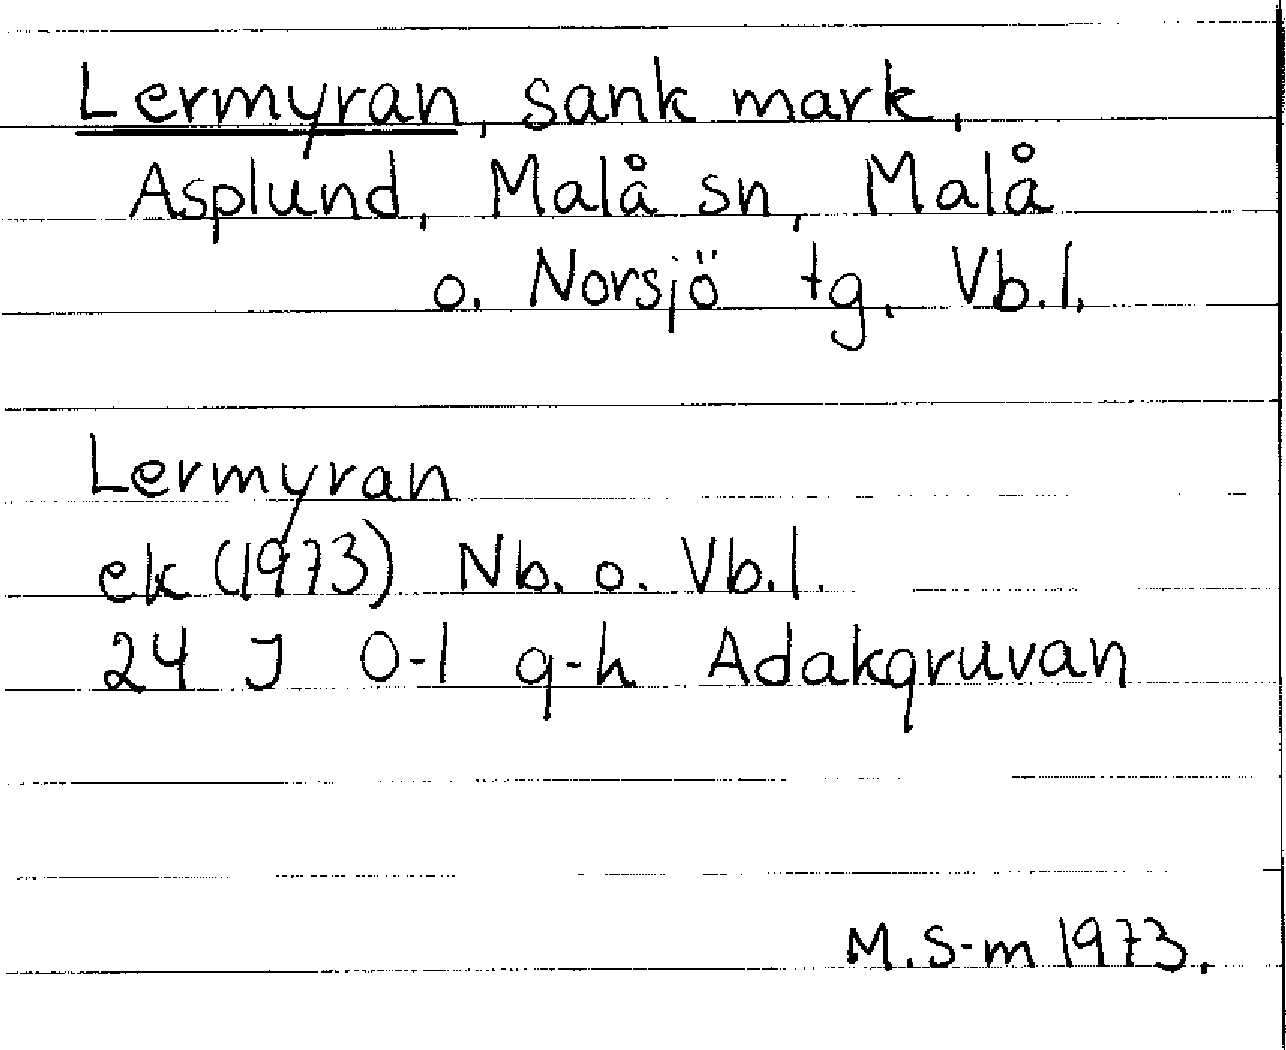 Lermyran, sank mark,
Asplund, Malå sn, Malå
o. Norsjö tg, Vb.l.
Lermyran
ek (1973) Nb. o. Vb.l.
24 J 0-1 g-h Adakgruvan
M.S-m 1973.